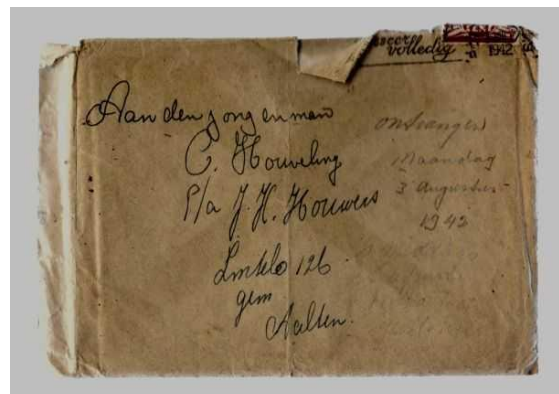 volledig
1942
Aan den jongenman
C. Houweling
P/a J. H. Houwers
Lintelo 126
gem
Aalten.
ontvangen
Maandag
3 Augustus
1942